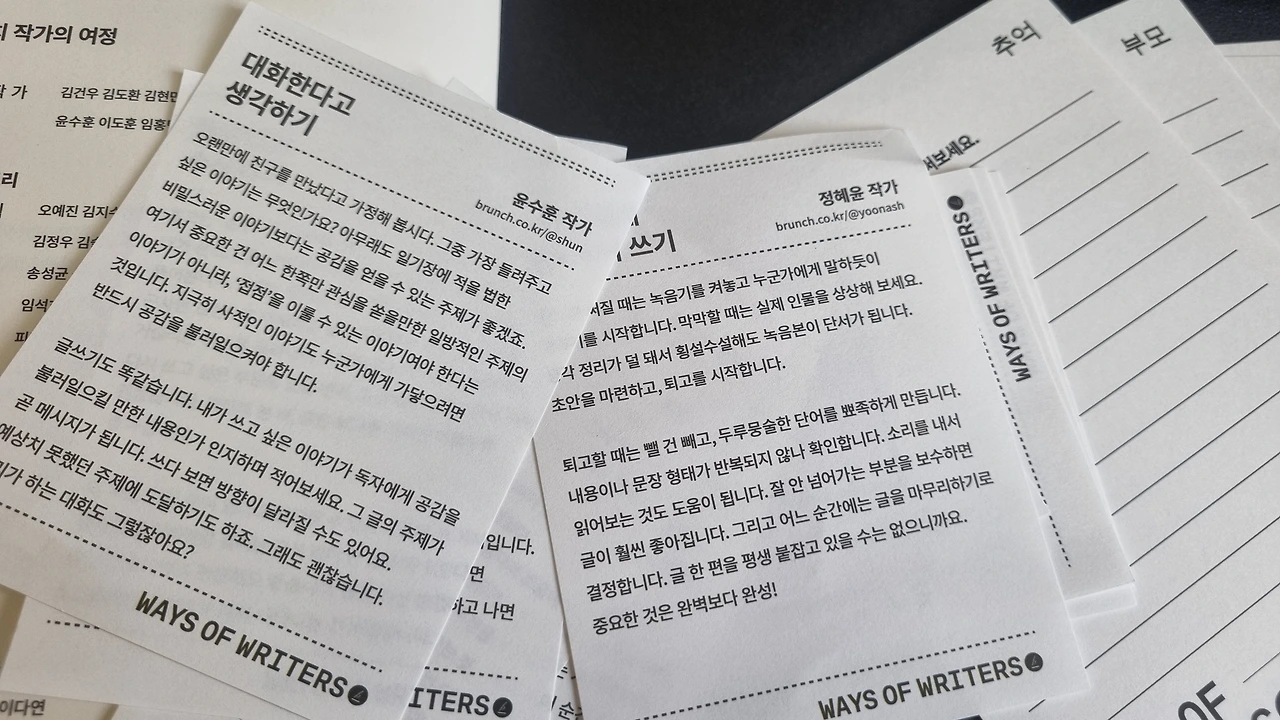 작가의 여정
작 가
김건우 김도환
윤수훈 이도훈
오예진
김정우
송성균
이다연
대화한다고
생각하기
윤수훈 작가
brunch.co.kr/@shun
오랜만에 친구를 만났다고 가정해 봅시다. 그중 가장 들려주고
싶은 이야기는 무엇인가요? 아무래도 일기장에 적을 법한
비밀스러운 이야기보다는 공감을 얻을 수 있는 주제가 좋겠죠.
여기서 중요한 건 어느 한쪽만 관심을 쏟을만한 일방적인 주제의
이야기가 아니라, '접점'을 이룰 수 있는 이야기여야 한다는
것입니다. 지극히 사적인 이야기도 누군가에게 가닿으려면
반드시 공감을 불러일으켜야 합니다.
글쓰기도 똑같습니다. 내가 쓰고 싶은 이야기가 독자에게 공감을
불러일으킬 만한 내용인가 인지하며 적어보세요. 그 글의 주제가
곧 메시지가 됩니다. 쓰다 보면 방향이 달라질 수도 있어요.
예상치 못했던 주제에 도달하기도 하죠. 그래도 괜찮습니다.
하는 대화도 그렇잖아요?
WAYS OF WRITERS
입니다.
면
하고 나면
ITERS
쓰기
정혜윤 작가
brunch.co.kr/@yoonash
써질 때는 녹음기를 켜놓고 누군가에게 말하듯이
를 시작합니다. 막막할 때는 실제 인물을 상상해 보세요.
각 정리가 덜 돼서 횡설수설해도 녹음본이 단서가 됩니다.
초안을 마련하고, 퇴고를 시작합니다.
퇴고할 때는 뺄 건 빼고, 두루뭉술한 단어를 뾰족하게 만듭니다.
내용이나 문장 형태가 반복되지 않나 확인합니다. 소리를 내서
읽어보는 것도 도움이 됩니다. 잘 안 넘어가는 부분을 보수하면
글이 훨씬 좋아집니다. 그리고 어느 순간에는 글을 마무리하기로
결정합니다. 글 한 편을 평생 붙잡고 있을 수는 없으니까요.
중요한 것은 완벽보다 완성!
WAYS OF WRITERS
WAYS OF WRITERS
추억
보세요.
부모
OF